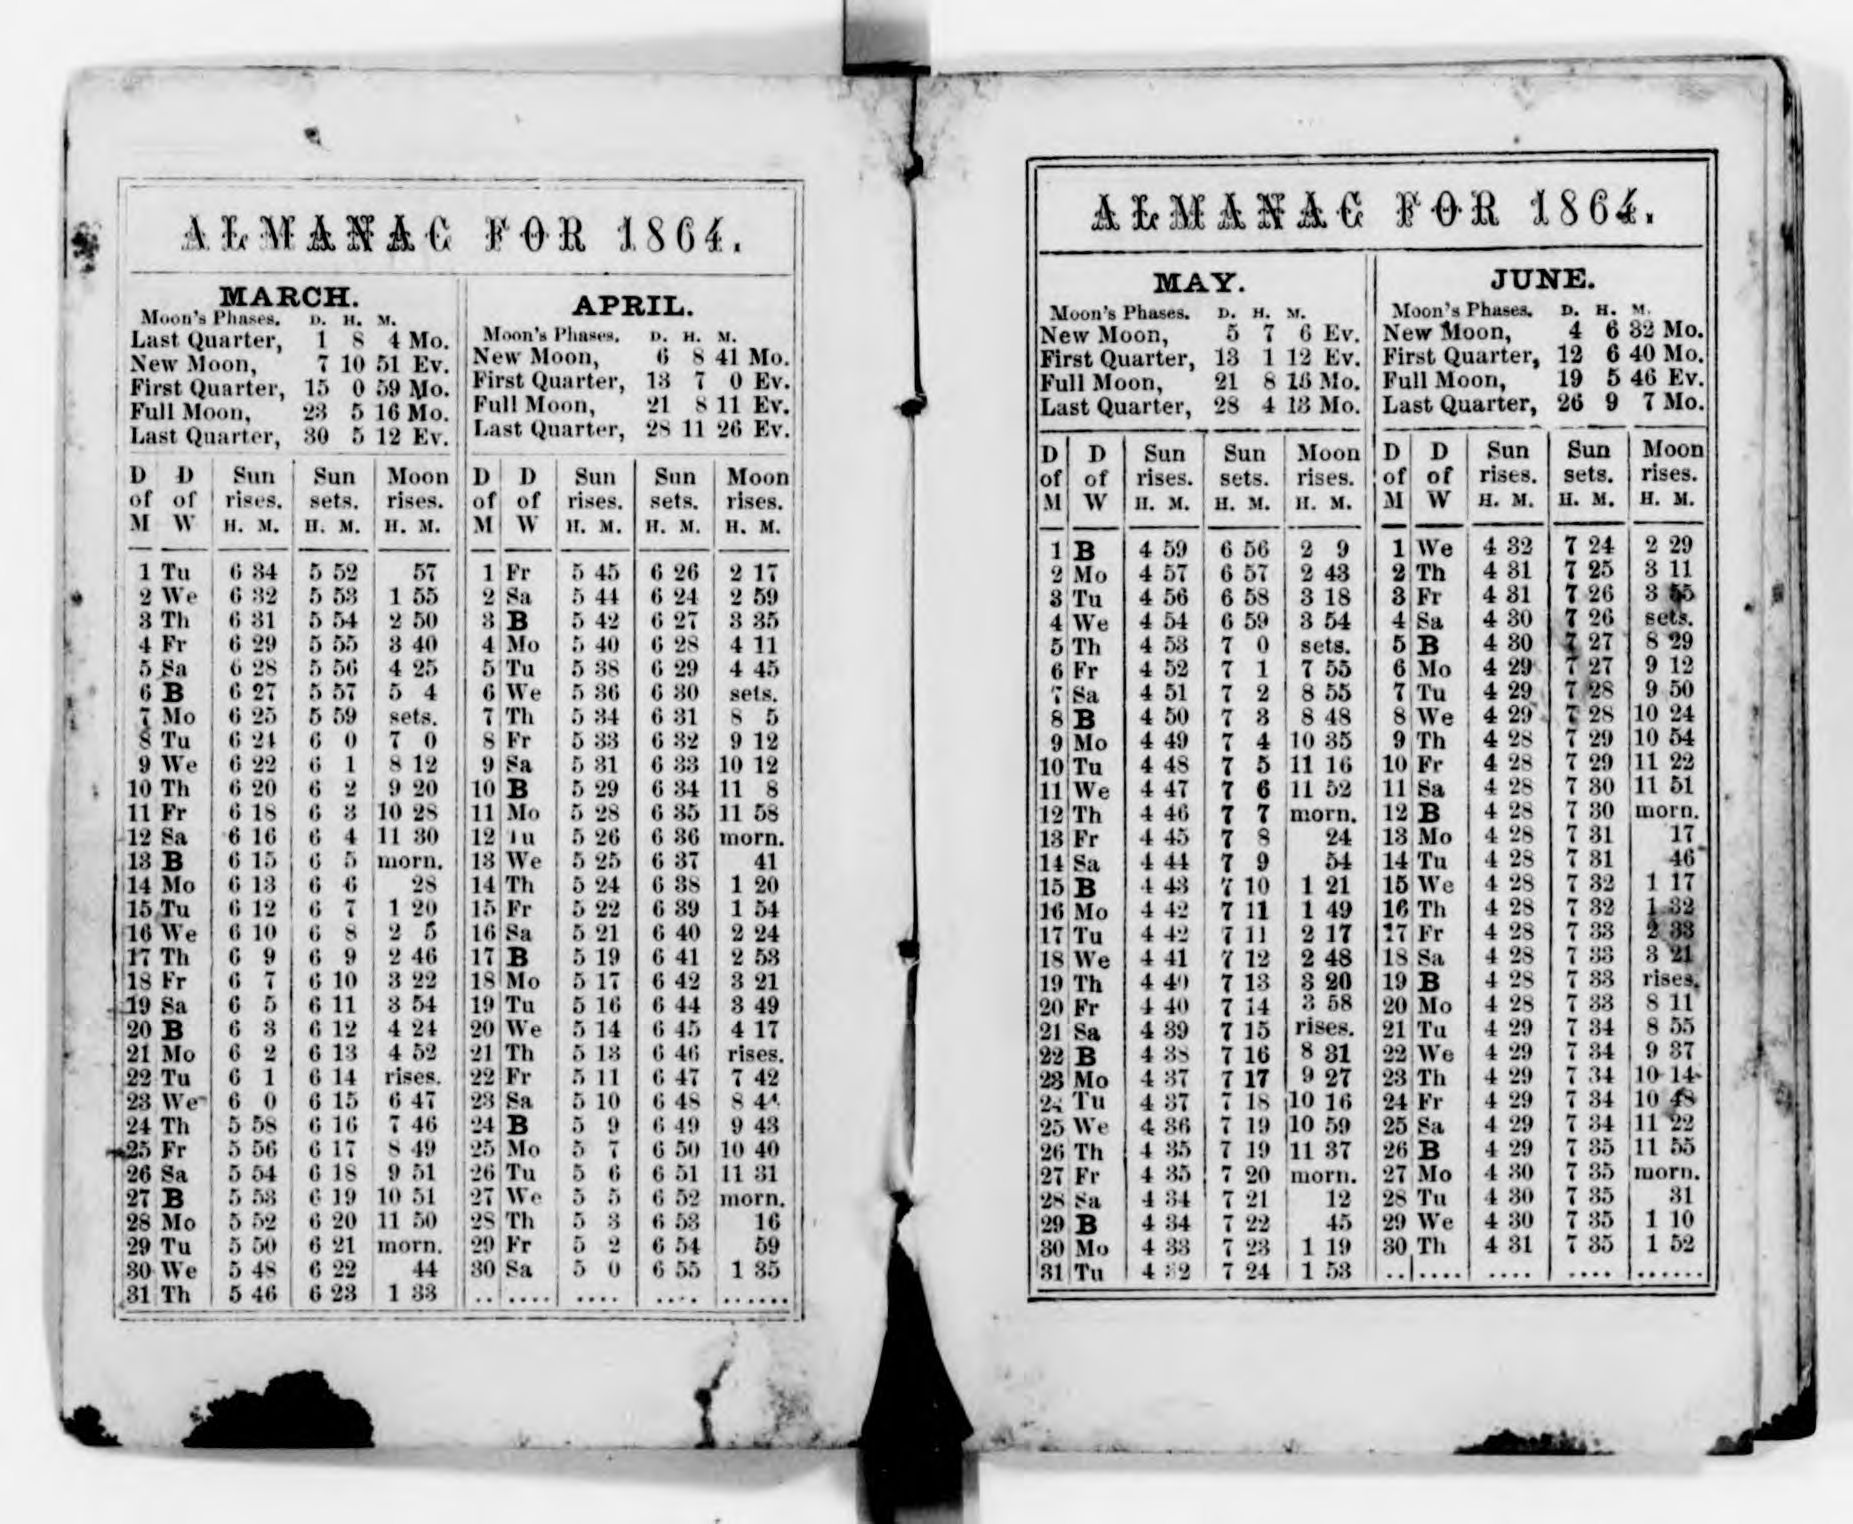 ALMANAC FOR 1864.
MARCH.
Moon's Phases. D. H. M.
Last Quarter, 1 8 4 Mo.
New Moon, 7 10 51 Ev.
First Quarter, 15 0 59 Mo.
Full Moon, 23 5 16 Mo.
Last Quarter, 30 5 12 Ev.
D D Sun Sun Moon
of of rises. sets. rises.
M W H. M. H. M. H. M.
1 Tu 6 34 5 52 57
2 We 6 32 5 53 1 55
3 Th 6 31 5 54 2 50
4 Fr 6 29 5 55 3 40
5 Sa 6 28 5 56 4 25
6 B 6 27 5 57 5 4
7 Mo 6 25 5 59 sets.
8 Tu 6 24 6 0 7 0
9 We 6 22 6 1 8 12
10 Th 6 20 6 2 9 20
11 Fr 6 18 6 3 10 28
12 Sa 6 16 6 4 11 30
13 B 6 15 6 5 morn.
14 Mo 6 13 6 6 28
15 Tu 6 12 6 7 1 20
16 We 6 10 6 8 2 5
17 Th 6 9 6 9 2 46
18 Fr 6 7 6 10 3 22
19 Sa 6 5 6 11 3 54
20 B 6 3 6 12 4 24
21 Mo 6 2 6 13 4 52
22 Tu 6 1 6 14 rises.
23 We 6 0 6 15 6 47
24 Th 5 58 6 16 7 46
25 Fr 5 56 6 17 8 49
26 Sa 5 54 6 18 9 51
27 B 5 53 6 19 10 51
28 Mo 5 52 6 20 11 50
29 Tu 5 50 6 21 morn.
30 We 5 48 6 22 44
31 Th 5 46 6 23 1 33
APRIL.
Moon's Phases. D. H. M.
New Moon, 6 8 41 Mo.
First Quarter, 13 7 0 Ev.
Full Moon, 21 8 11 Ev.
Last Quarter, 28 11 26 Ev.
D D Sun Sun Moon
of of rises. sets. rises.
M W H. M. H. M. H. M.
1 Fr 5 45 6 26 2 17
2 Sa 5 44 6 24 2 59
3 B 5 42 6 27 3 35
4 Mo 5 40 6 28 4 11
5 Tu 5 38 6 29 4 45
6 We 5 36 6 30 sets.
7 Th 5 34 6 31 8 5
8 Fr 5 33 6 32 9 12
9 Sa 5 31 6 33 10 12
10 B 5 29 6 34 11 8
11 Mo 5 28 6 35 11 58
12 Tu 5 26 6 36 morn.
13 We 5 25 6 37 41
14 Th 5 24 6 38 1 20
15 Fr 5 22 6 39 1 54
16 Sa 5 21 6 40 2 24
17 B 5 19 6 41 2 53
18 Mo 5 17 6 42 3 21
19 Tu 5 16 6 44 3 49
20 We 5 14 6 45 4 17
21 Th 5 13 6 46 rises.
22 Fr 5 11 6 47 7 42
23 Sa 5 10 6 48 8
24 B 5 9 6 49 9 43
25 Mo 5 7 6 50 10 40
26 Tu 5 6 6 51 11 31
27 We 5 5 6 52 morn.
28 Th 5 3 6 53 16
29 Fr 5 2 6 54 59
30 Sa 5 0 6 55 1 35
.. .... .... .... ......
ALMANAC FOR 1864.
MAY.
Moon's Phases. D. H. M.
New Moon, 5 7 6 Ev.
First Quarter, 13 1 12 Ev.
Full Moon, 21 8 16 Mo.
Last Quarter, 28 4 13 Mo.
D D Sun Sun Moon
of of rises. sets. rises.
M W H. M. H. M. H. M.
1 B 4 59 6 56 2 9
2 Mo 4 57 6 57 2 43
3 Tu 4 56 6 58 3 18
4 We 4 54 6 59 3 54
5 Th 4 53 7 0 sets.
6 Fr 4 52 7 1 7 55
7 Sa 4 51 7 2 8 55
8 B 4 50 7 3 8 48
9 Mo 4 49 7 4 10 35
10 Tu 4 48 7 5 11 16
11 We 4 47 7 6 11 52
12 Th 4 46 7 7 morn.
13 Fr 4 45 7 8 24
14 Sa 4 44 7 9 54
15 B 4 43 7 10 1 21
16 Mo 4 42 7 11 1 49
17 Tu 4 42 7 11 2 17
18 We 4 41 7 12 2 48
19 Th 4 40 7 13 3 20
20 Fr 4 40 7 14 3 58
21 Sa 4 39 7 15 rises.
22 B 4 38 7 16 8 31
23 Mo 4 37 7 17 9 27
24 Tu 4 37 7 18 10 16
25 We 4 36 7 19 10 59
26 Th 4 35 7 19 11 37
27 Fr 4 35 7 20 morn.
28 Sa 4 34 7 21 12
29 B 4 34 7 22 45
30 Mo 4 33 7 23 1 19
31 Tu 4 32 7 24 1 53
JUNE.
Moon's Phases. D. H. M.
New Moon, 4 6 32 Mo.
First Quarter, 12 6 40 Mo.
Full Moon, 19 5 46 Ev.
Last Quarter, 26 9 7 Mo.
D D Sun Sun Moon
of of rises. sets. rises.
M W H. M. H. M. H. M.
1 We 4 32 7 24 2 29
2 Th 4 31 7 25 3 11
3 Fr 4 31 7 26 3 55
4 Sa 4 30 7 26 sets.
5 B 4 30 7 27 8 29
6 Mo 4 29 7 27 9 12
7 Tu 4 29 7 28 9 50
8 We 4 29 7 28 10 24
9 Th 4 28 7 29 10 54
10 Fr 4 28 7 29 11 22
11 Sa 4 28 7 30 11 51
12 B 4 28 7 30 morn.
13 Mo 4 28 7 31 17
14 Tu 4 28 7 31 46
15 We 4 28 7 32 1 17
16 Th 4 28 7 32 1 32
17 Fr 4 28 7 33 2 33
18 Sa 4 28 7 33 3 21
19 B 4 28 7 33 rises.
20 Mo 4 28 7 33 8 11
21 Tu 4 29 7 34 8 55
22 We 4 29 7 34 9 37
23 Th 4 29 7 34 10 14
24 Fr 4 29 7 34 10 48
25 Sa 4 29 7 34 11 22
26 B 4 29 7 35 11 55
27 Mo 4 30 7 35 morn.
28 Tu 4 30 7 35 31
29 We 4 30 7 35 1 10
30 Th 4 31 7 35 1 52
.. .... .... .... ......